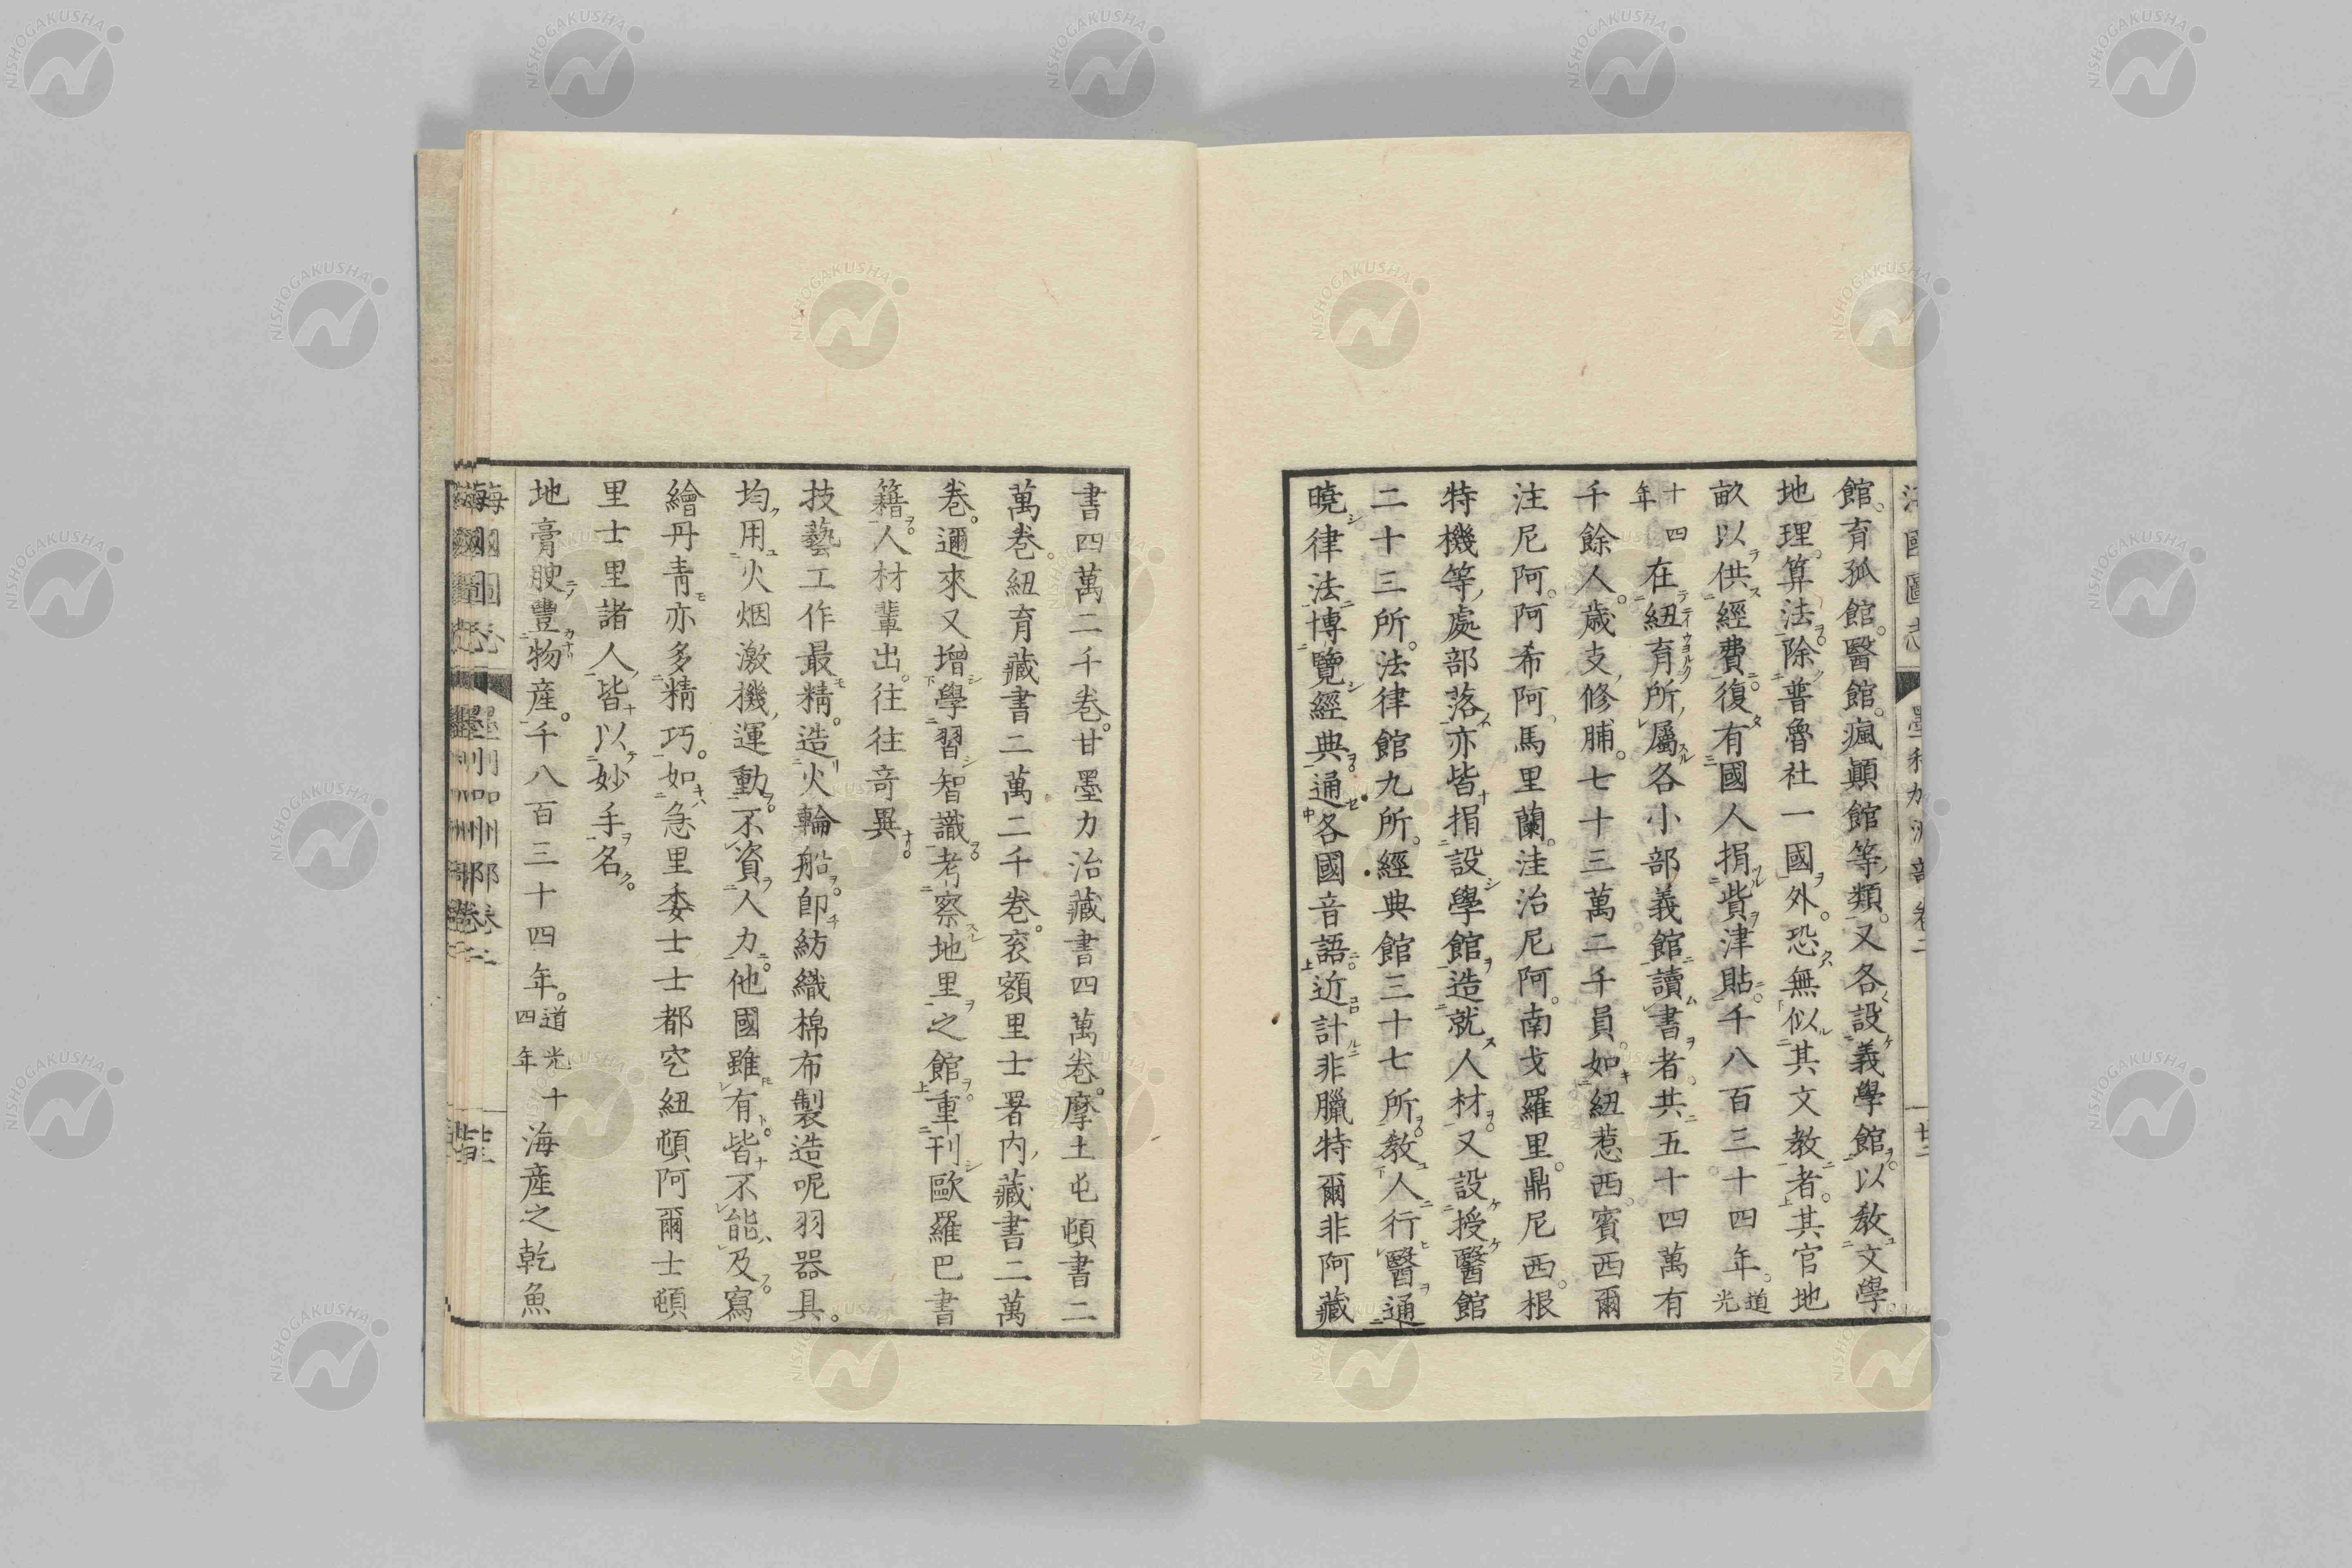 館。育孤館。醫館。瘋顚館等類。又各設義學館。以敎文學
地理。算法。除普魯社一國外。恐無似其文教者。其官地
畝以供經費。復有國人捐貲津貼。千八百三十四年。道光
十四年在紐育所屬各小部義館讀書者。共五十四萬有
千餘人。歲支修脯。七十三萬二千員。如紐惹西。賓西爾
洼尼阿。阿希阿。馬里蘭。洼治尼阿。南戈羅里。鼎尼西。根
特機等處部落亦皆捐設學館造就人材。又設授醫館
二十三所。法律館九所。經典館三十七所。敎人行醫通
曉律法博覽經典。通各國音語。近計非臘特爾非阿藏
書四萬二千卷。甘墨力治藏書四萬卷。摩士屯頓書二
萬卷。紐育藏書二萬二千卷。衮額里士署内藏書二萬
卷。邇來又增學習智識。考察地里之館。重刊歐羅巴書
籍。人材輩出。往往竒異。
技藝工作最精。造火輪船。即紡織棉布製造呢羽器具。
均用火烟激機運動。不資人力。他國雖有。皆不能及。寫
繪丹靑亦多精巧。如急里委士士都空紐頓阿爾士頓
里士里諸人。皆以妙手名。
地膏腴豐物産。千八百三十四年。道光十四年海産之乾魚
NISHOGAKUSHA